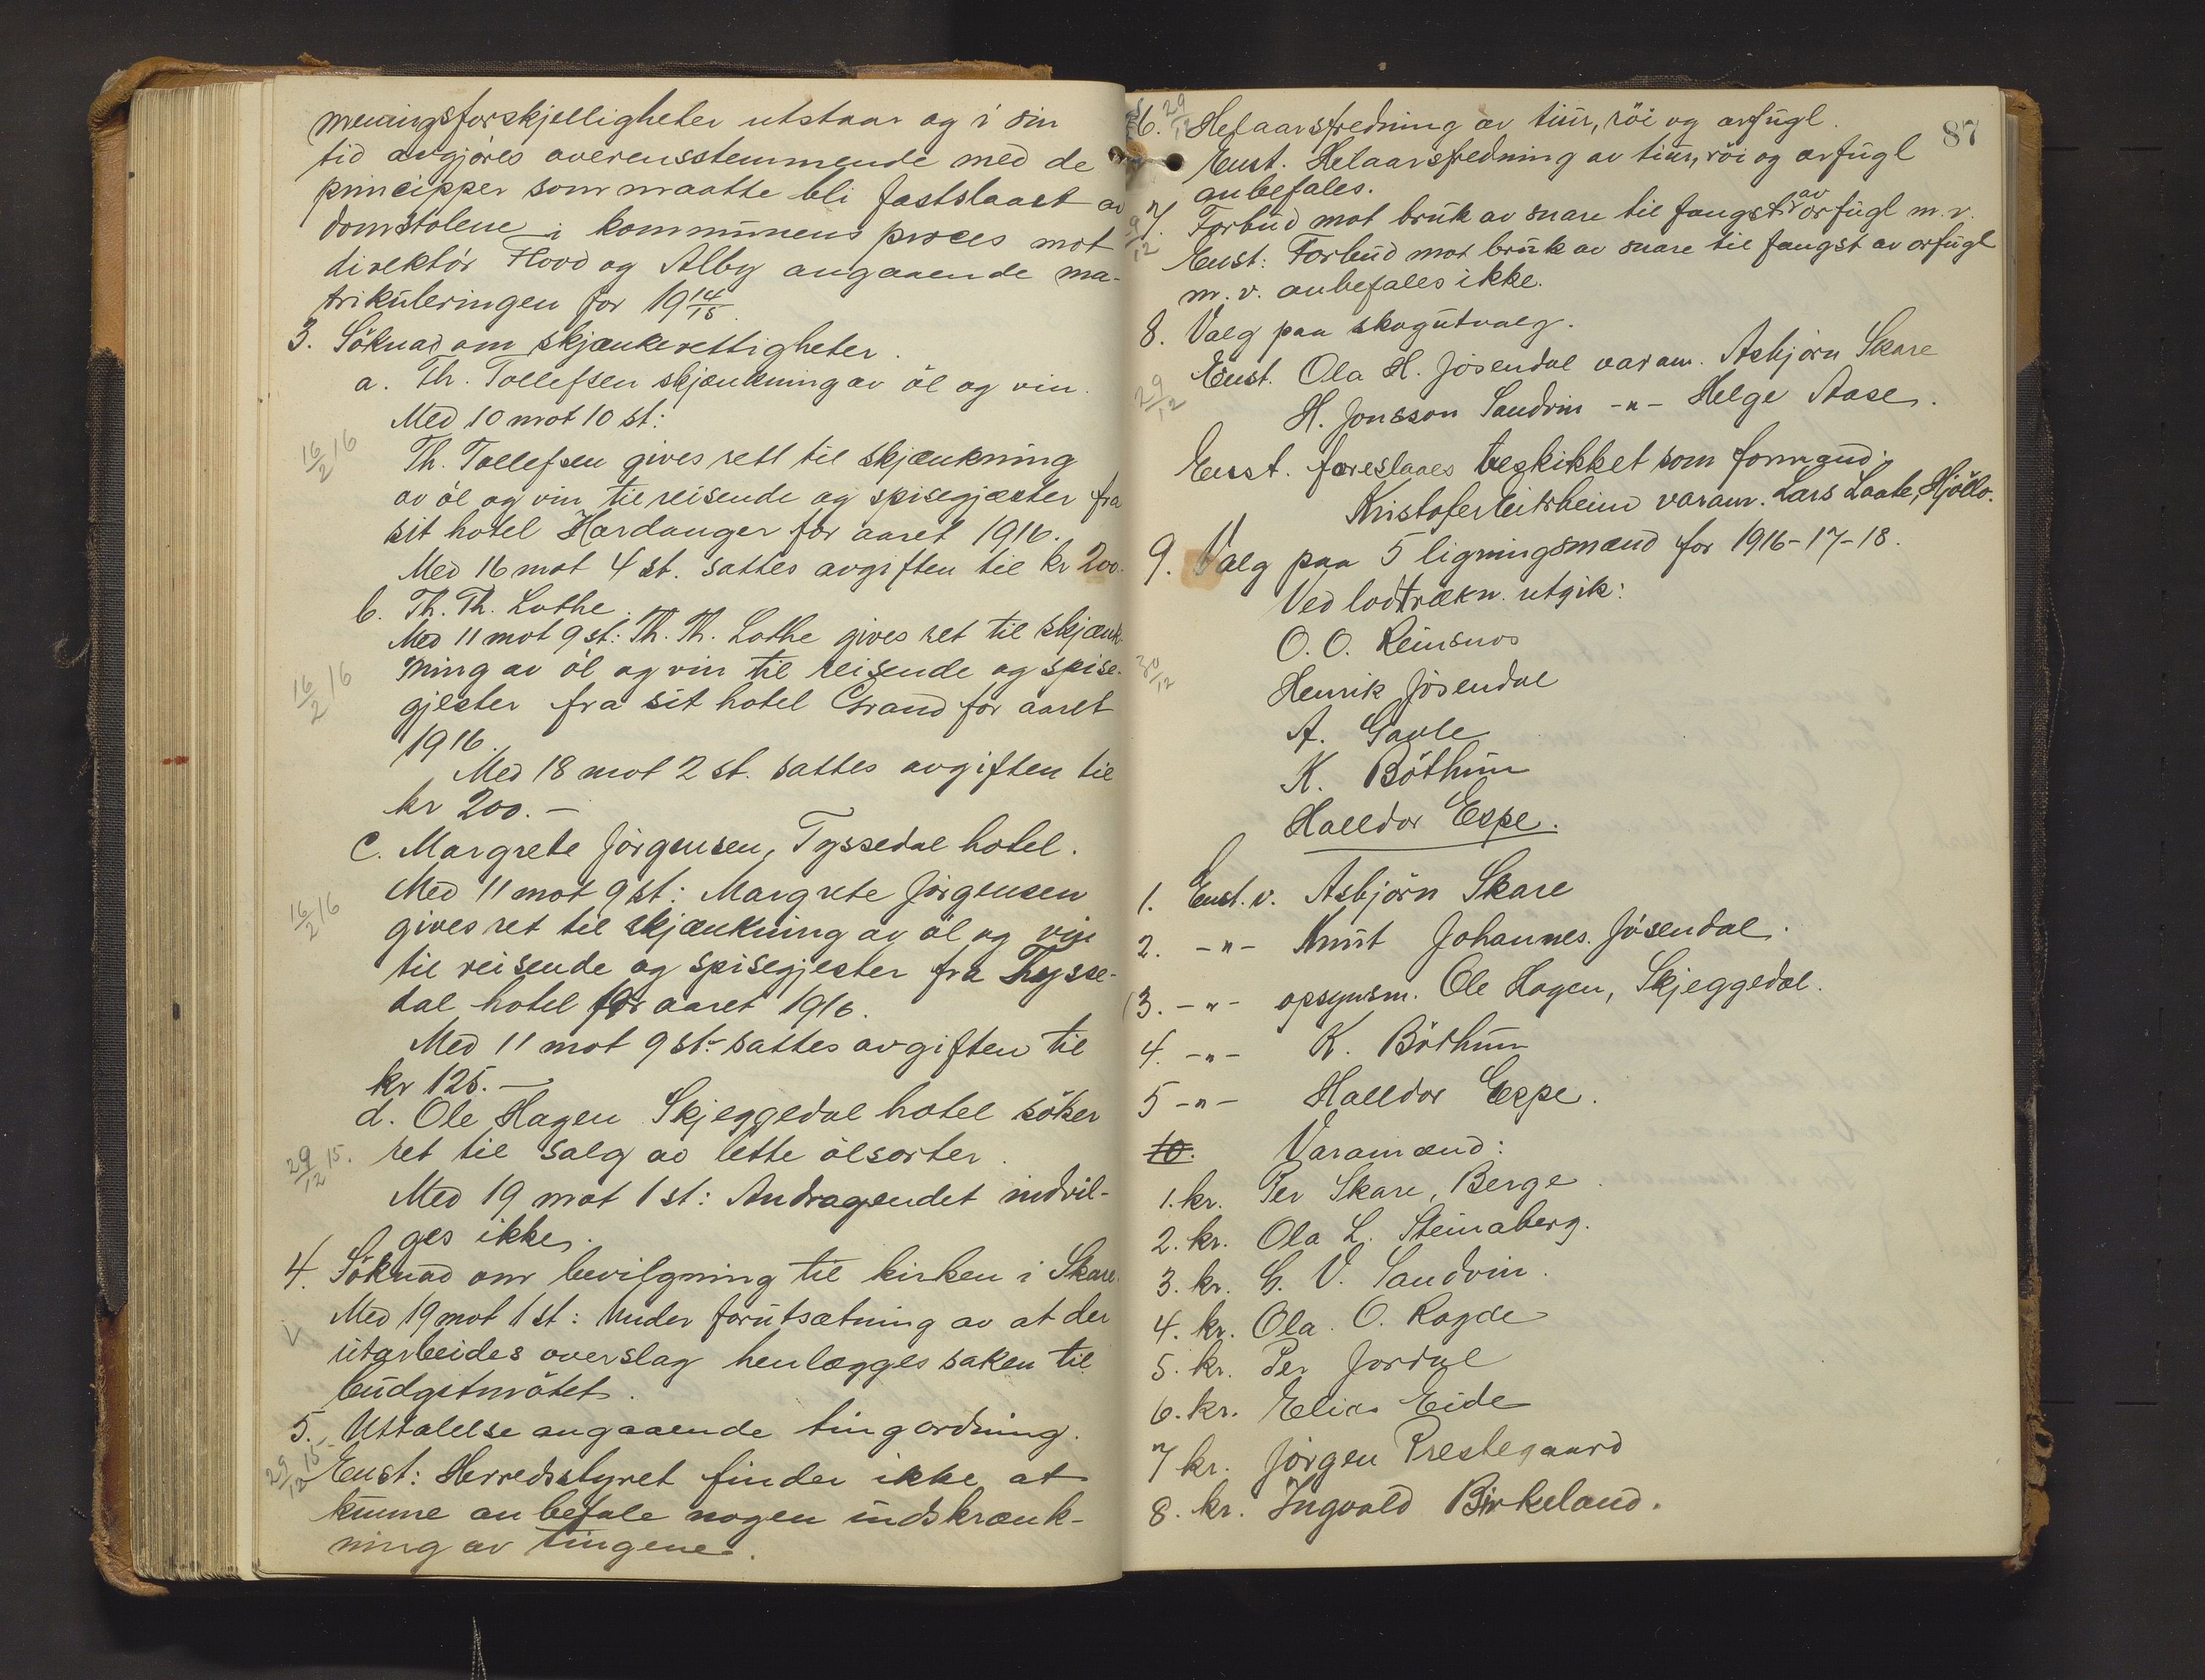 meningsforskjelligheter utstaar og i sin
tid avgjøres overensstemmende med de
principper som maatte bli fastslaaet av
domstolene i kommunens proces mot
direktör Flood og Alby angaaende ma-
trikuleringen for 19 14/15.
3. Söknad om skjænkerettigheter.
a. Th. Tollefsen skjænkning av öl og vin.
Med 10 mot 10 st:
16/2 16
Th. Tollefsen gives rett til skjænkning
av öl og vin til reisende og spisegjæster fra
sit hotel Hardanger for aaret 1916.
Med 16 mot 4 st. sattes avgiften til kr 200.
b. Th. Th. Lothe.
Med 11 mot 9 st: Th. Th. Lothe gives ret til skjænk-
16/2 16
ning av öl og vin til reisende og spise-
gjester fra sit hotel Grand for aaret
1916.
Med 18 mot 2 st. sattes avgiften til
kr 200.-
c. Margrete Jörgensen, Tyssedal hotel.
Med 11 mot 9 st: Margrete Jörgensen
16/2 16
gives ret til skjænkning av öl og vin
til reisende og spisegjester fra Thysse-
dal hotel for aaret 1916.
Med 11 mot 9 st. sattes avgiften til
kr 125.-
d. Ole Hagen Skjeggedal hotel söker
29/12 15.
ret til salg av lette ölsorter.
Med 19 mot 1 st: Andragendet indvil-
ges ikke.
4. Söknad om bevilgning til kirken i Skare.
Med 19 mot 1 st: Under forutsætning av at der
utarbeides overslag henlægges saken til
budgetmötet.
5. Uttalelse angaaende tingordning.
29/12 15
Enst: Herredsstyret finder ikke at
kunne anbefale nogen indskrænk-
ning av tingene.
87
6. 29/12 Helaarsfredning av tiur, röi og orfugl.
Enst. Helaarsfredning av tiur, röi og orfugl
anbefales.
7. Forbud mot bruk av snare til fangst av orfugl m.v.
29/12
Enst: Forbud mot bruk av snare til fangst av orfugl
m.v. anbefales ikke.
8. Valg paa skogutvalg.
29/12
Enst. Ola H. Jösendal varam. Asbjörn Skare
H. Jonsson Sandvin -"- Helge Aase.
Enst. foreslaaes beskikket som formand:
Kristofer Eitrheim varam. Lars Laate, Hjöllo.
9. Valg paa 5 ligningsmænd for 1916-17-18.
Ved lodtrækn. utgik:
O. O. Reinsnos
30/12
Henrik Jösendal
A. Gaule
K. Böthun
Halldor Espe.
1. Enst. v. Asbjörn Skare
2. -"- Knut Johannes. Jösendal.
3. -"- opsynsm. Ole Hagen, Skjeggedal.
4. -"- K. Böthun
5 -"- Halldor Espe.
10. Varamænd:
1. kr. Per Skare, Berge.
2. kr. Ola L. Steinaberg.
3. kr. G. V. Sandvin.
4. kr. Ola O. Ragde
5. kr. Per Jordal
6. kr. Elias Eide
7 kr. Jörgen Prestegaard
8. kr. Ingvald Birkeland.